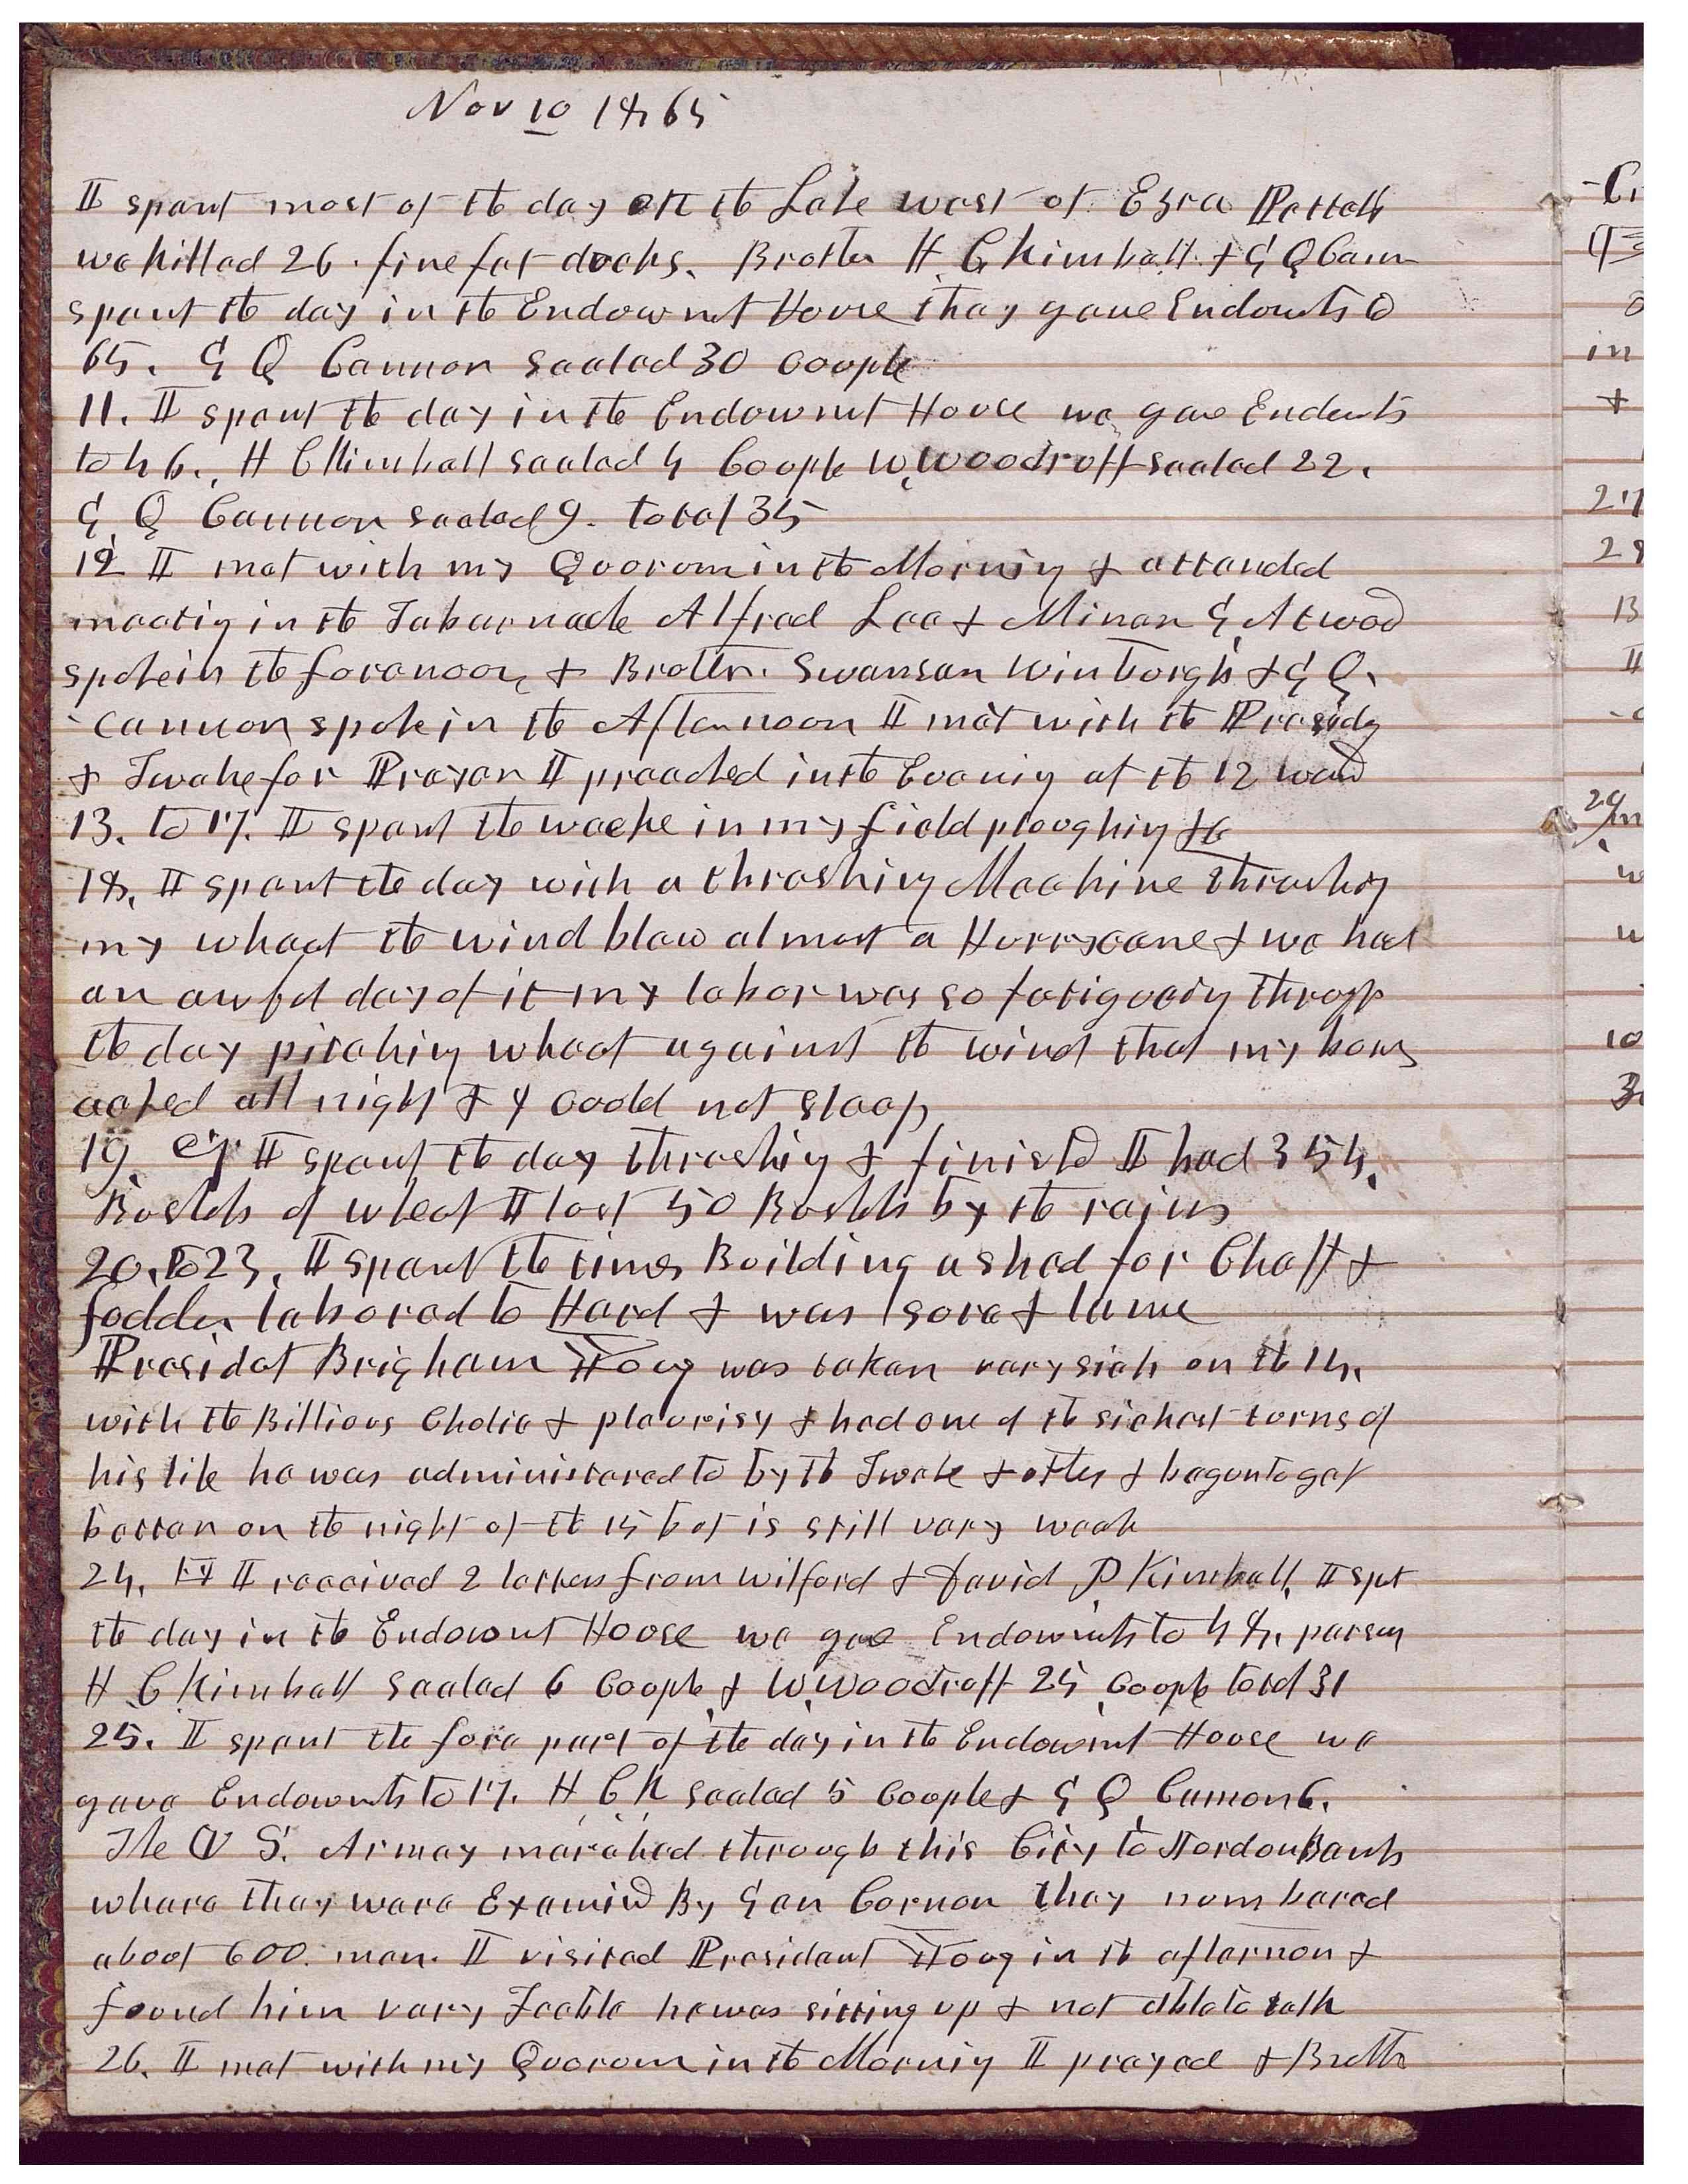 Nov 10 1865
I spent most of the day on the Lake west of Ezra Pettett
we killed 26 fine fat ducks. Brother H. C Kimball & G Q Cann
spent the day in the Endowmt House they gave Endowts to
65. G Q Cannon sealed 30 couple
11. I spent the day in the Endowmt House we gave Endewts
to 46. H C Kimball sealed 4 Couple W. Woodruff sealed 22.
G Q Cannon sealed 9. total 35
12 I met with my Quorum in the Morning & attended
meeting in the Tabernacle Alfred Lee & Minar G Atwood
spoke in the forenoon, & Brother Swansan Winborgh & G Q.
Cannon spoke in the Afternoon I met with the Presidy
& Twelve for Prayer I preached in the Evening at the 12 ward
13. to 17. I spent the weeke in my field ploughing &c
18. I spent the day with a threshing Machine threshing
my wheat the wind blew almost a Hurrycane & we had
an awful day of it my labor was so fatigueing through
the day pitching wheat against the wind that my bones
ached all night & I could not sleep
19. I spent the day threshing & finished I had 354.
Bushels of wheat I lost 50 Bushels by the rains
20. to 23. I spent the times Building a shed for Chaff &
fodder labored to Hard & was sore & lame
Presidet Brigham Young was taken very sick on the 14.
with the Billious Cholic & pleurisy & had one of the sickest turns of
his life he was administered to by the Twelve & others & began to get
better on the night of the 15 but is still very weak
24. I received 2 letters from Wilford & David P Kimball, I spt
the day in the Endowmt House we gave Endowmts to 48. persons
H C Kimball sealed 6 Couple, & W. Woodruff 25 Couple total 31
25. I spent the fore part of the day in the Endowmt House we
gave Endowmts to 17. H C K sealed 5 Couple & G Q Cannon 6.
The U S. Army marched through this City to Jordon Bank
where they were Examined By Gen Connor they numbered
about 600. men. I visited President Young in the afternon &
found him very Feeble he was sitting up & not able to talk
26. I met with my Quorum in the Morning I prayed & Brother